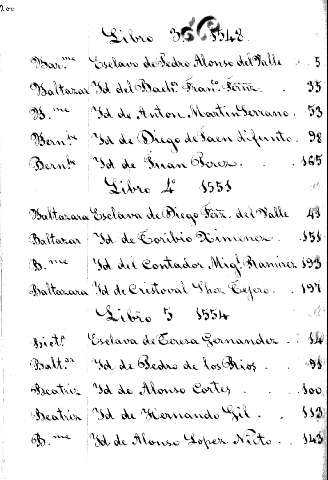 200
Libro 3º 1548
Bar.me Esclavo de Pedro Alonso del Valle . 5
Baltazar Id del Bach.r Fran.co Fernz . 35
B.me Id de Anton Martin Serrano . 53
Bern.be Id de Diego de Jaen difunto . 98
Bern.be Id de Juan Perez . . 165
Libro 4º 1551
Baltazara Esclava de Diego Fernz del Valle . 41
Baltazar Id de Toribio Ximenez . . 151
B.me Id del Contador Mig.l Ramirez 193
Baltazara Id de Cristoval Shez Tejero . 197
Libro 5 1554
Esclava de Teresa Hernandez . . 14
Balt.ar Id de Pedro de los Rios . . 91
Beatriz Id de Alonso Cortes . . . 100
Beatriz Id de Hernando Gil . . . 112
B.me Id de Alonso Lopez Nieto . . 143